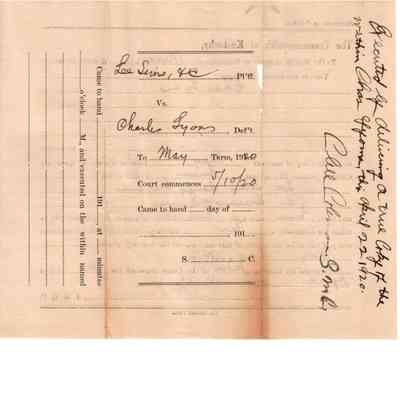 Lee Sims, &c Pl'ff.
Vs.
Charles Lyons Def't.
To May Term, 1920
Court commences 5/10/20
Came to hand day of
191
S. C.
Came to hand 191 at minutes
o'clock M., and executed on the within named
Executed by delivering a true Copy of the
within Chas Lyons this April 22 1920.